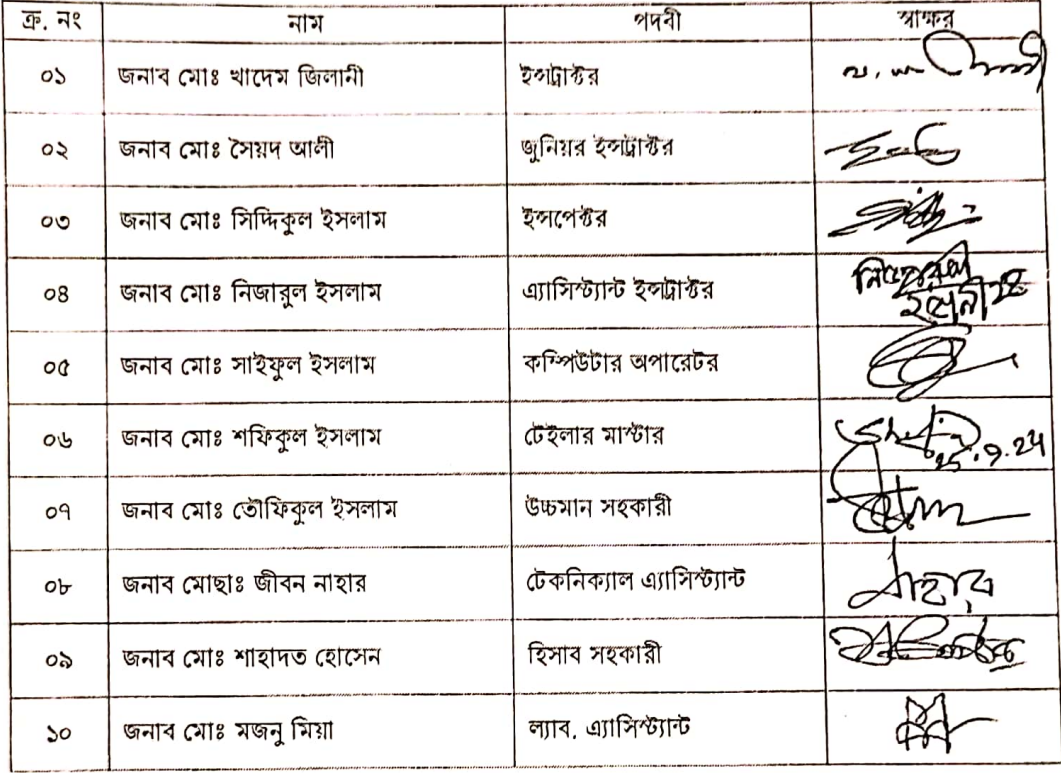 ক্র. নং নাম পদবী স্বাক্ষর
০১ জনাব মোঃ খাদেম জিলানী ইন্সট্রাক্টর
০২ জনাব মোঃ সৈয়দ আলী জুনিয়র ইন্সট্রাক্টর
০৩ জনাব মোঃ সিদ্দিকুল ইসলাম ইন্সপেক্টর
০৪ জনাব মোঃ নিজারুল ইসলাম এ্যাসিস্ট্যান্ট ইন্সট্রাক্টর
০৫ জনাব মোঃ সাইফুল ইসলাম কম্পিউটার অপারেটর
০৬ জনাব মোঃ শফিকুল ইসলাম টেইলার মাস্টার
০৭ জনাব মোঃ তৌফিকুল ইসলাম উচ্চমান সহকারী
০৮ জনাব মোছাঃ জীবন নাহার টেকনিক্যাল এ্যাসিস্ট্যান্ট নাহার
০৯ জনাব মোঃ শাহাদত হোসেন হিসাব সহকারী
১০ জনাব মোঃ মজনু মিয়া ল্যাব. এ্যাসিস্ট্যান্ট